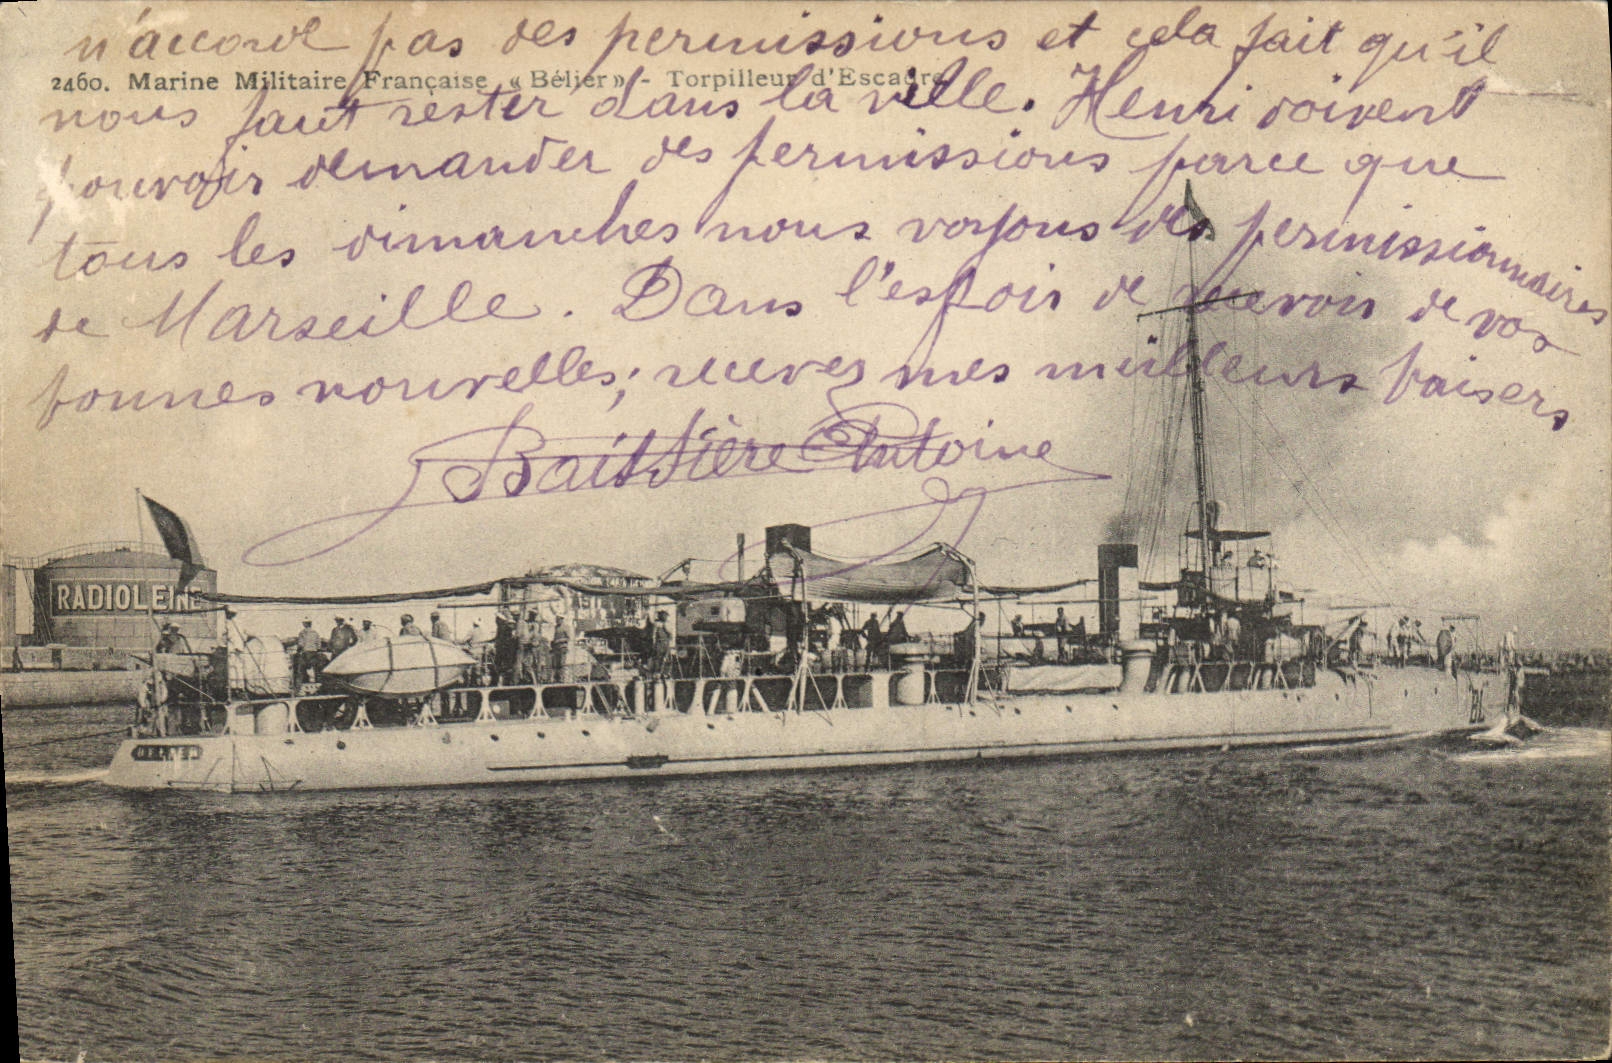 n'accorde pas des permissions et cela fait qu'il
2460. Marine Militaire Française « Bélier » - Torpilleur d'Escadre
nous faut rester dans la ville. Henri doivent
pouvoir demander des permissions parce que
tous les dimanches nous voyons des permissionnaires
de Marseille. Dans l'espoir de recevoir de vos
bonnes nouvelles; recevez mes meilleurs baisers
Baissière Antoine
RADIOLEINE
BELIER
BL